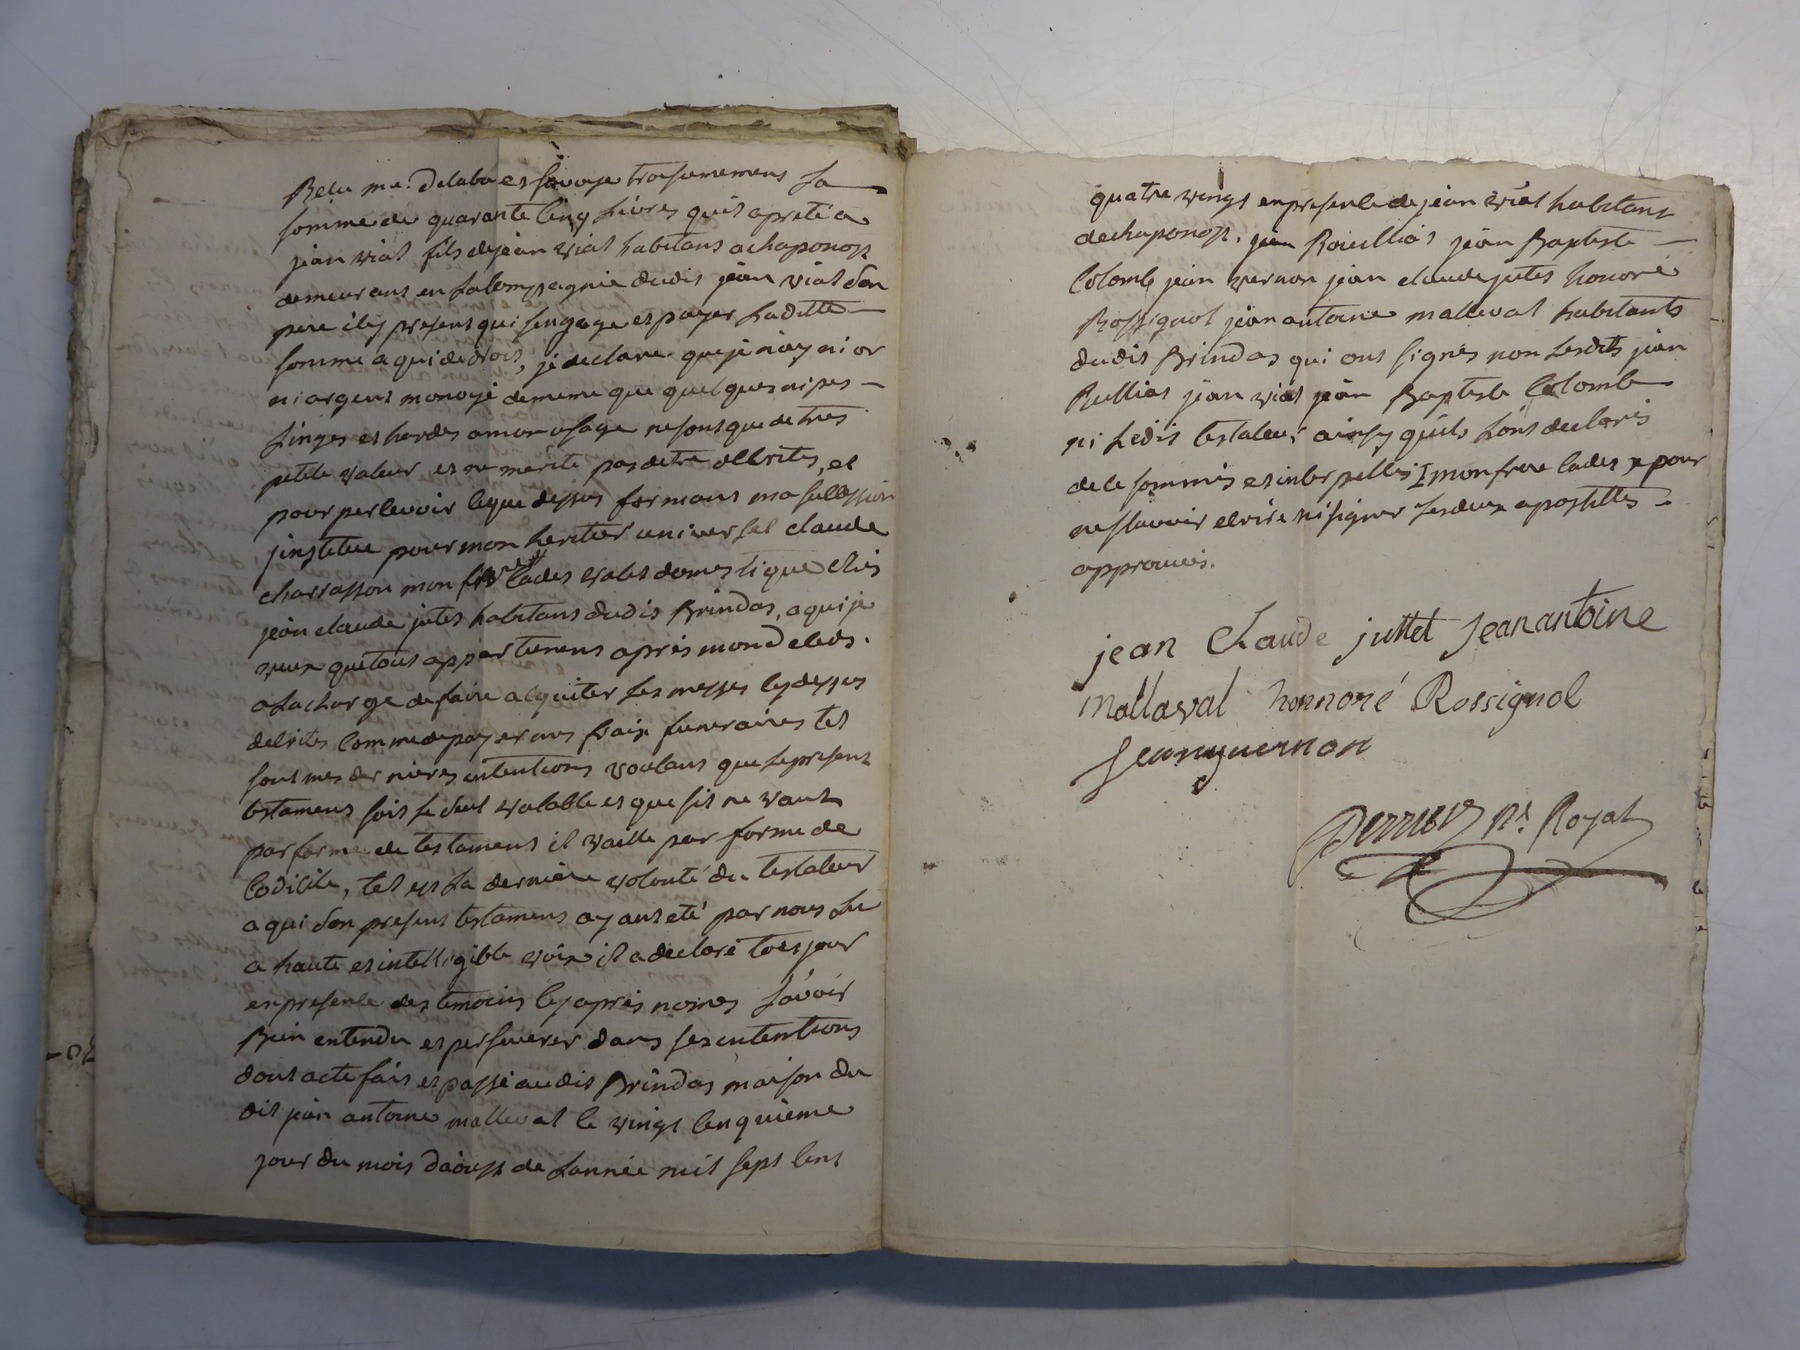 somme de quarante cinq Livres qu'il a preté a
jean vial fils de jean vial habitans a chaponost
demeurans en La Compagnie dudit jean vial Son
pere icy present qui s'engage et payer Laditte
somme a qui de droit, je declare que je n'ay ni or
ni argent monoyé de meme que quelques nipes
Linges et hardes a mon usage ne sont que de tres
petite valeur et ne merite pas detre décrites, et
pour percevoir ce que dessus formant ma succession
jinstitue pour mon heritier universel claude
charrasson mon frere cadet valet domestique chés
jean claude jutet habitans dudit Brindas, a qui je
veux que tout appartienens après mon décés.
a La charge de faire acquiter Les messes cy dessus
décrites comme de payer mes fraix funeraires tel
sont mes dernieres intentions voulans que Le present
testamens soit Le seul valable et que sil ne vaut
par forme de testamens il vaille par forme de
Codicile, tel est La derniere volonté du testateur
a qui Son present testamens ayant eté par nous Lu
a haute et intelligible voix il a declaré toujour
en presence des temoins cy après només Savoir
Bien entendu et perseverer dans ses intentions
dont acte fait et passé audit Brindas maison du
dit jean antoine malleval le vingt cinquieme
jour du mois daoust de Lannée mil sept cent
quatre vingt en presence de jean vial habitant
de chaponost, jean Roullias jean Baptiste
Colomb jean vernon jean claude jutet honoré
Rossignol jean antoine malleval habitants
dudit Brindas qui ont signés non Lesdits jean
Rullias jean vial jean Baptiste Colomb
ni Ledit testateur ainsy quils Lont declarés
de ce sommés et interpellés I mon frere cadet x pour
ne scavoir ecrire ni signer Les deux apostilles
approuvés.
jean Claude juttet Jean antoine
mallaval honnoré Rossignol
Jean guernon
Perrier nre. Royal